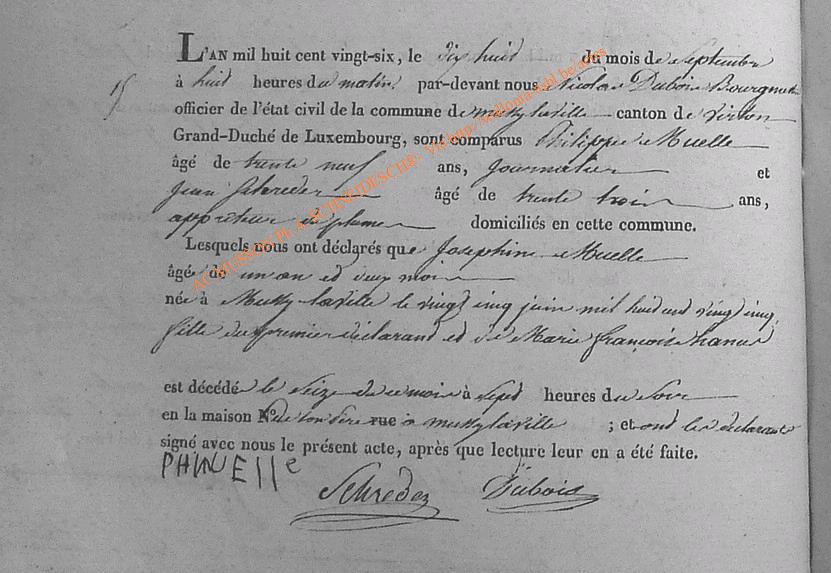 15
L'AN mil huit cent vingt-six, le dix huit du mois de Septembre
à huit heures du matin, par-devant nous Nicolas Dubois Bourgmestre
officier de l'état civil de la commune de mussy laville canton de virton
Grand-Duché de Luxembourg, sont comparus Philippe Muelle
âgé de trente neuf ans, journalier et
Jean Schreder âgé de trente trois ans,
appretieur de plumes domiciliés en cette commune.
Lesquels nous ont déclarés que Josephine Muelle
âgée de un an et deux mois
née à Mussy laville le vingt cinq juin mil huit cent vingt cinq,
fille du premier déclarant et de Marie françoise hanus
est décédée le Seize de ce mois à Sept heures du Soir
en la maison N.º de son père rue à mussy laville ; et ont les déclarants
signé avec nous le présent acte, après que lecture leur en a été faite.
PHMUElle
Schreder Dubois